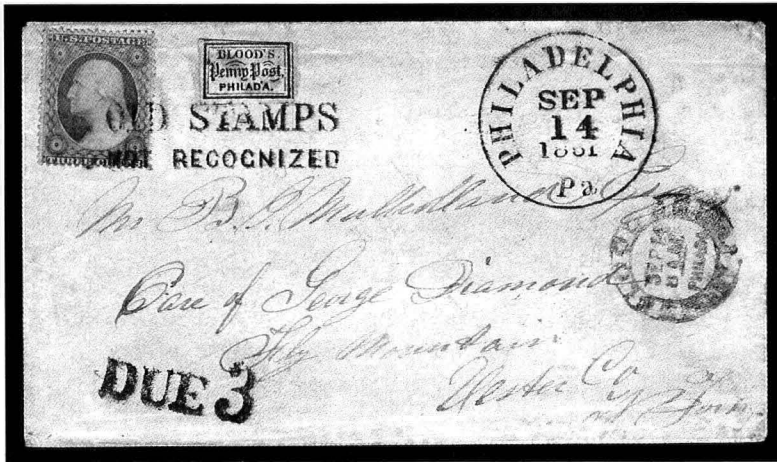 U.S. POSTAGE
BLOOD'S
Penny Post,
PHILAD'A.
OLD STAMPS
NOT RECOGNIZED
PHILADELPHIA
SEP
14
1861
Pa
Mr B. Mulholland
SEP 14
8 AM
PHILADA
Care of George Diamond
Fly Mountain
Ulster Co
DUE 3